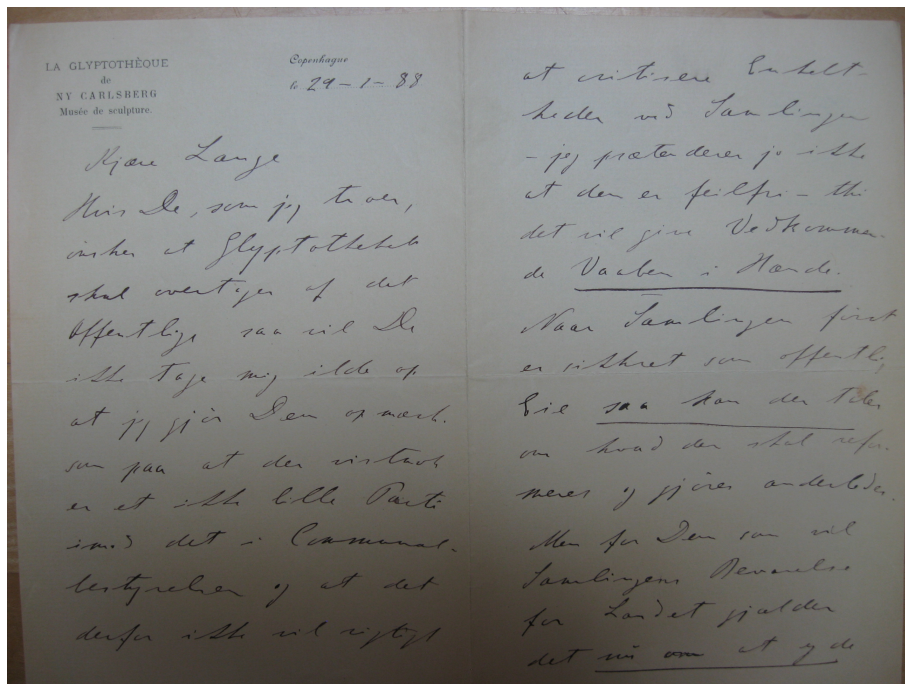 LA GLYPTOTHÈQUE
de
NY CARLSBERG
Musée de sculpture.
Copenhague
le 29-1-88
Kjære Lange
Hvis De, som jeg troer,
ønsker at Glyptotheket
skal overtages af det
Offentlige saa vil De
ikke tage mig ilde op
at jeg gjør Dem opmærk-
som paa at der vistnok
er et ikke lille Parti
imod det i Communal-
bestyrelsen og at det
derfor ikke vil rigtigt
at critisere Enkelt-
heder ved Samlingen
- jeg prætenderer jo ikke
at den er feilfri - thi
det vil give Vedkommen-
de Vaaben i Hænde.
Naar Samlingen først
er sikkret som offentlig
Eie saa kan der tales
om hvad der skal refor-
meres og gjøres anderledes.
Men for Dem som vil
Samlingens Bevarelse
for Landet gjælder
det nu om at